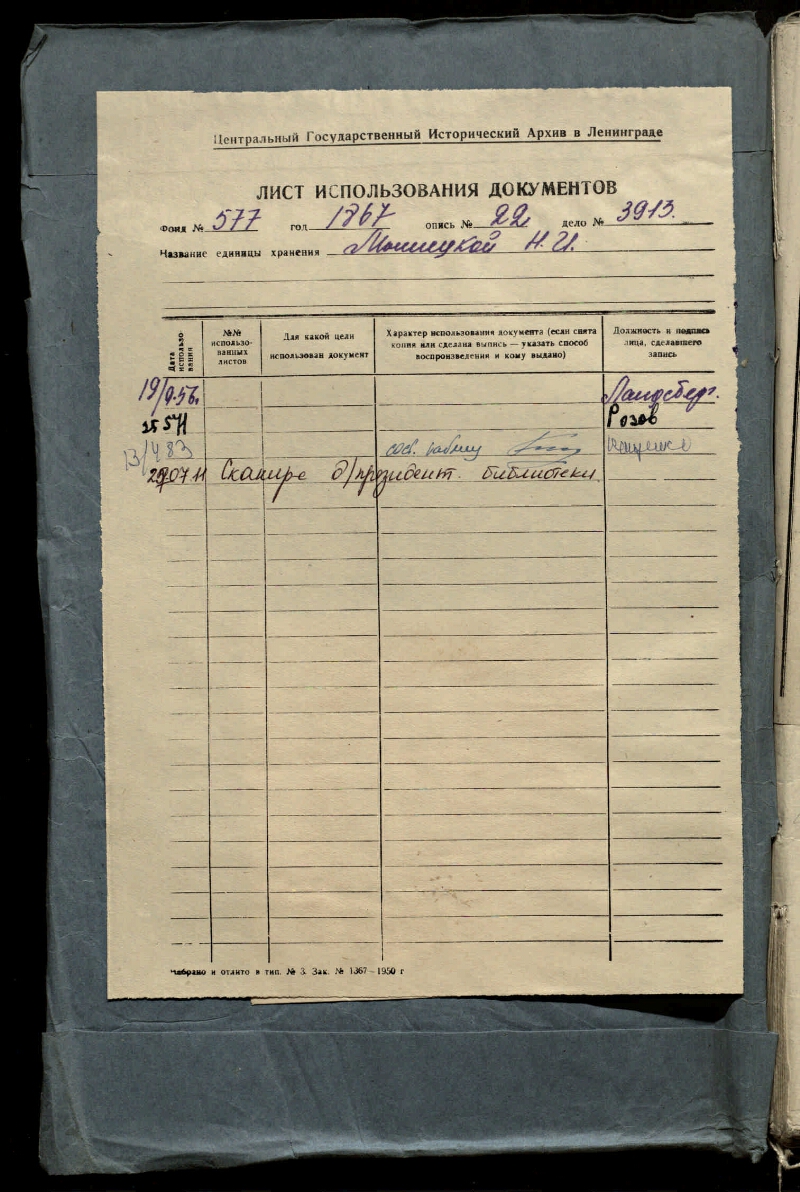 Центральный Государственный Исторический Архив в Ленинграде
ЛИСТ ИСПОЛЬЗОВАНИЯ ДОКУМЕНТОВ
Фонд № 577 год 1867 опись № 22 дело № 3913.
Название единицы хранения Н. И.
Дата использования
№№ использованных листов
Для какой цели использован документ
Характер использования документа (если снята копия или сделана выпись — указать способ воспроизведения и кому выдано)
Должность и подпись лица, сделавшего запись
Ландсберг.
Розов
13/4 83
07.11 Сканир-е д/президент. библиотеки
Набрано и отлито в тип. № 3. Зак. № 1367—1950 г